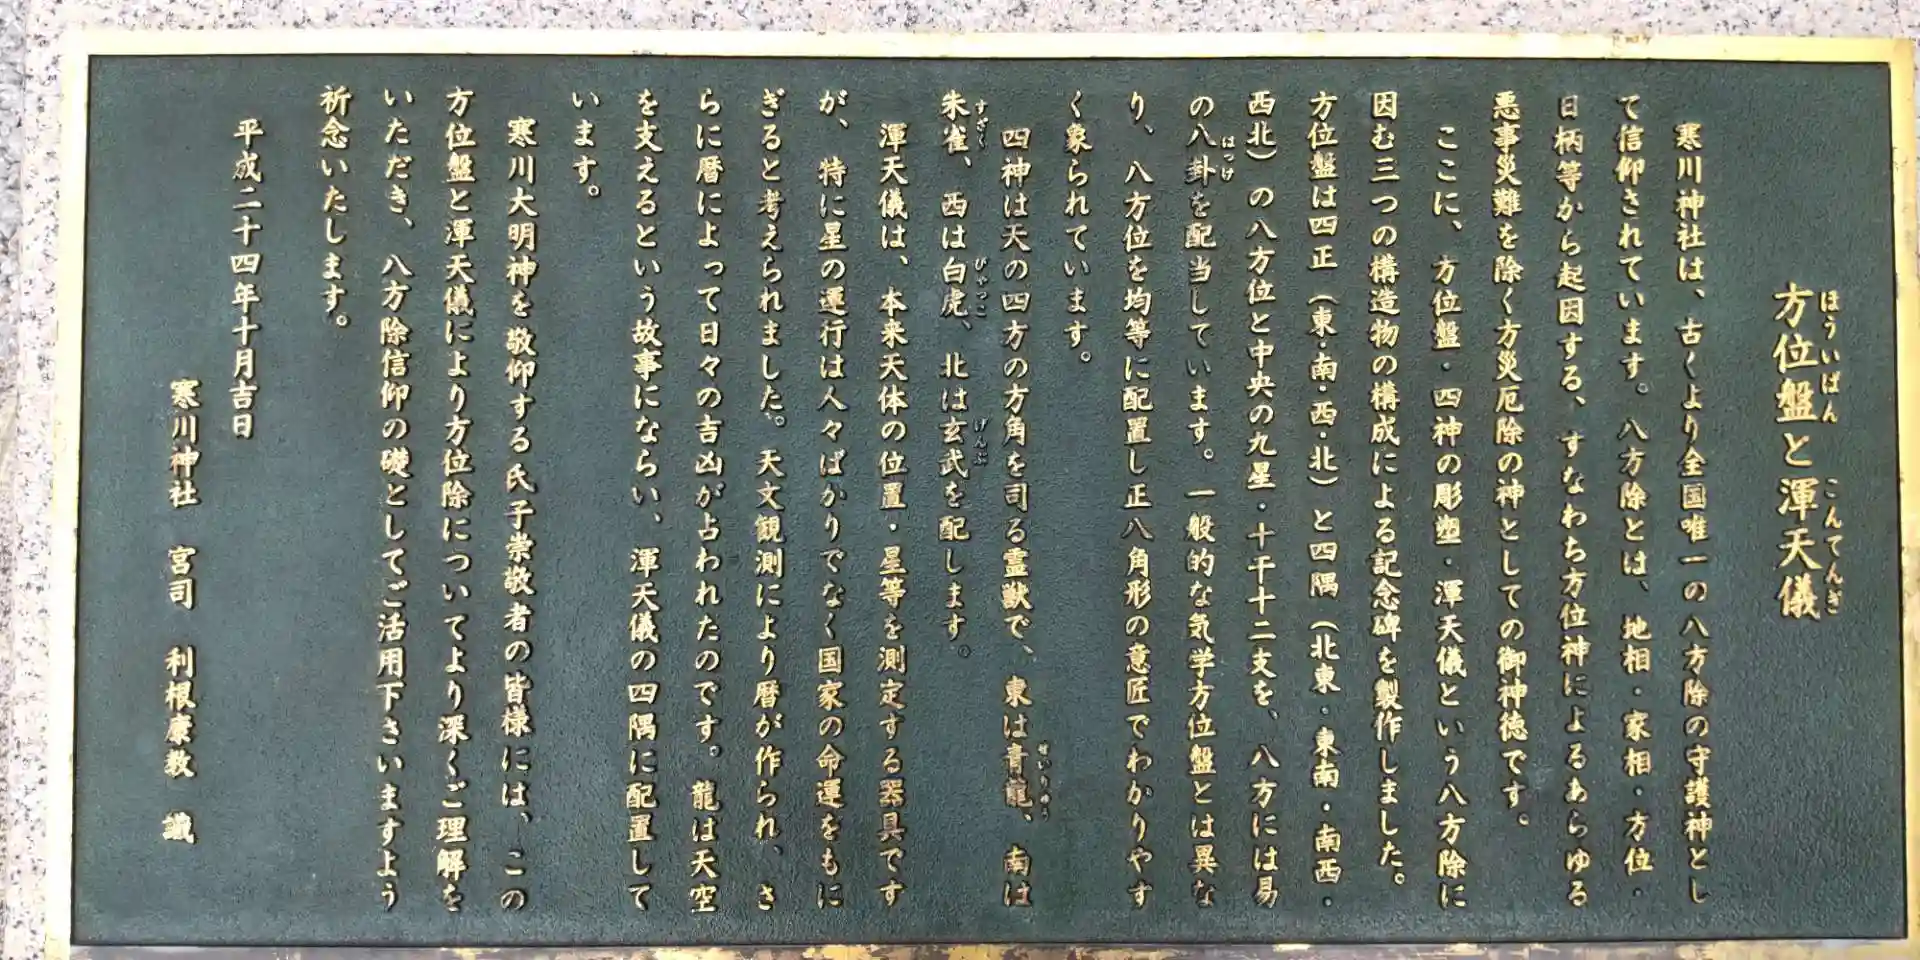 方位盤と渾天儀
ほういばん
こんてんぎ
寒川神社は、古くより全国唯一の八方除の守護神とし
て信仰されています。八方除とは、地相・家相・方位・
日柄等から起因する、すなわち方位神によるあらゆる
悪事災難を除く方災厄除の神としての御神徳です。
ここに、方位盤・四神の彫塑・渾天儀という八方除に
因む三つの構造物の構成による記念碑を製作しました。
方位盤は四正（東・南・西・北）と四隅（北東・東南・南西・
西北）の八方位と中央の九星・十干十二支を、八方には易
の八卦を配当しています。一般的な気学方位盤とは異な
はっけ
り、八方位を均等に配置し正八角形の意匠でわかりやす
く象られています。
四神は天の四方の方角を司る霊獣で、東は青龍、南は
せいりゅう
朱雀、西は白虎、北は玄武を配します。
すざく
びゃっこ
げんぶ
渾天儀は、本来天体の位置・星等を測定する器具です
が、特に星の運行は人々ばかりでなく国家の命運をもに
ぎると考えられました。天文観測により暦が作られ、さ
らに暦によって日々の吉凶が占われたのです。龍は天空
を支えるという故事にならい、渾天儀の四隅に配置して
います。
寒川大明神を敬仰する氏子崇敬者の皆様には、この
方位盤と渾天儀により方位除についてより深くご理解を
いただき、八方除信仰の礎としてご活用下さいますよう
祈念いたします。
平成二十四年十月吉日
寒川神社 宮司 利根康教 識